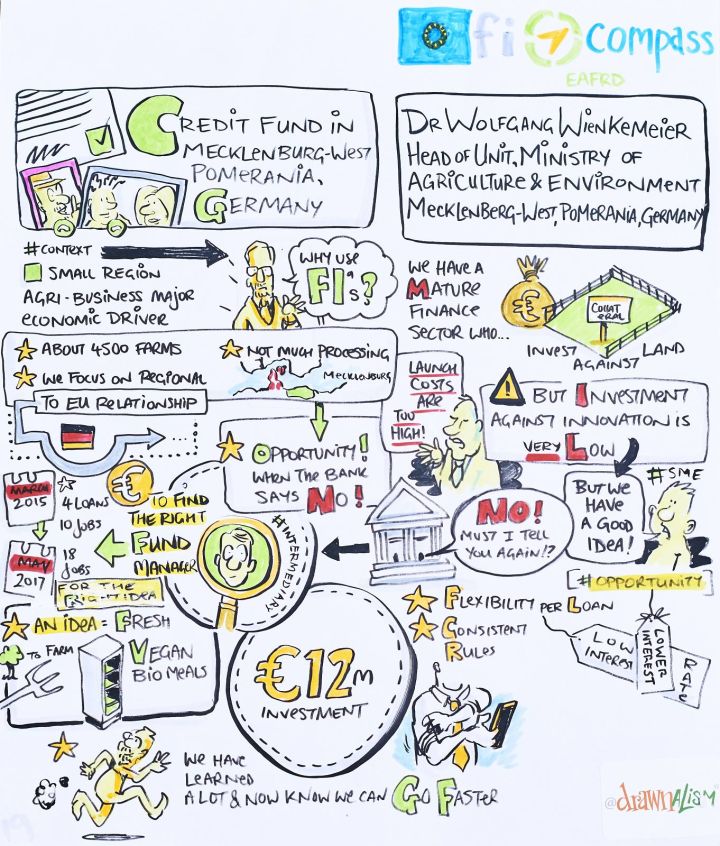 fi compass
EAFRD
CREDIT FUND IN
MECKLENBURG-WEST
POMERANIA,
GERMANY
DR WOLFGANG WIENKEMEIER
HEAD OF UNIT, MINISTRY OF
AGRICULTURE & ENVIRONMENT
MECKLENBERG-WEST, POMERANIA, GERMANY
#CONTEXT
SMALL REGION
AGRI-BUSINESS MAJOR
ECONOMIC DRIVER
WHY USE
FI's?
WE HAVE A
MATURE
FINANCE
SECTOR WHO...
€
COLLAT
ERAL
INVEST
AGAINST
LAND
ABOUT 4500 FARMS
NOT MUCH PROCESSING
WE FOCUS ON REGIONAL
MECKLENBURG
TO EU RELATIONSHIP
...
LAUNCH
COSTS
ARE
TOO
HIGH!
! BUT INVESTMENT
AGAINST INNOVATION IS
VERY LOW
OPPORTUNITY!
WHEN THE BANK
SAYS NO!
#SME
BUT WE
HAVE
A GOOD
IDEA!
NO!
MUST I TELL
YOU AGAIN!?
MARCH
2015
4 LOANS
10 JOBS
MAY
2017
18
JOBS
€
TO FIND
THE RIGHT
FUND
MANAGER
#INTERMEDIARY
FOR THE
RIGHT IDEA
#OPPORTUNITY
LOW
INTEREST
LOWER
INTEREST
RATE
FLEXIBILITY PER LOAN
CONSISTENT
RULES
AN IDEA = FRESH
TO FARM
VEGAN
BIO MEALS
€12m
INVESTMENT
WE HAVE
LEARNED
A LOT & NOW KNOW WE CAN GO FASTER
@drawnalism
19